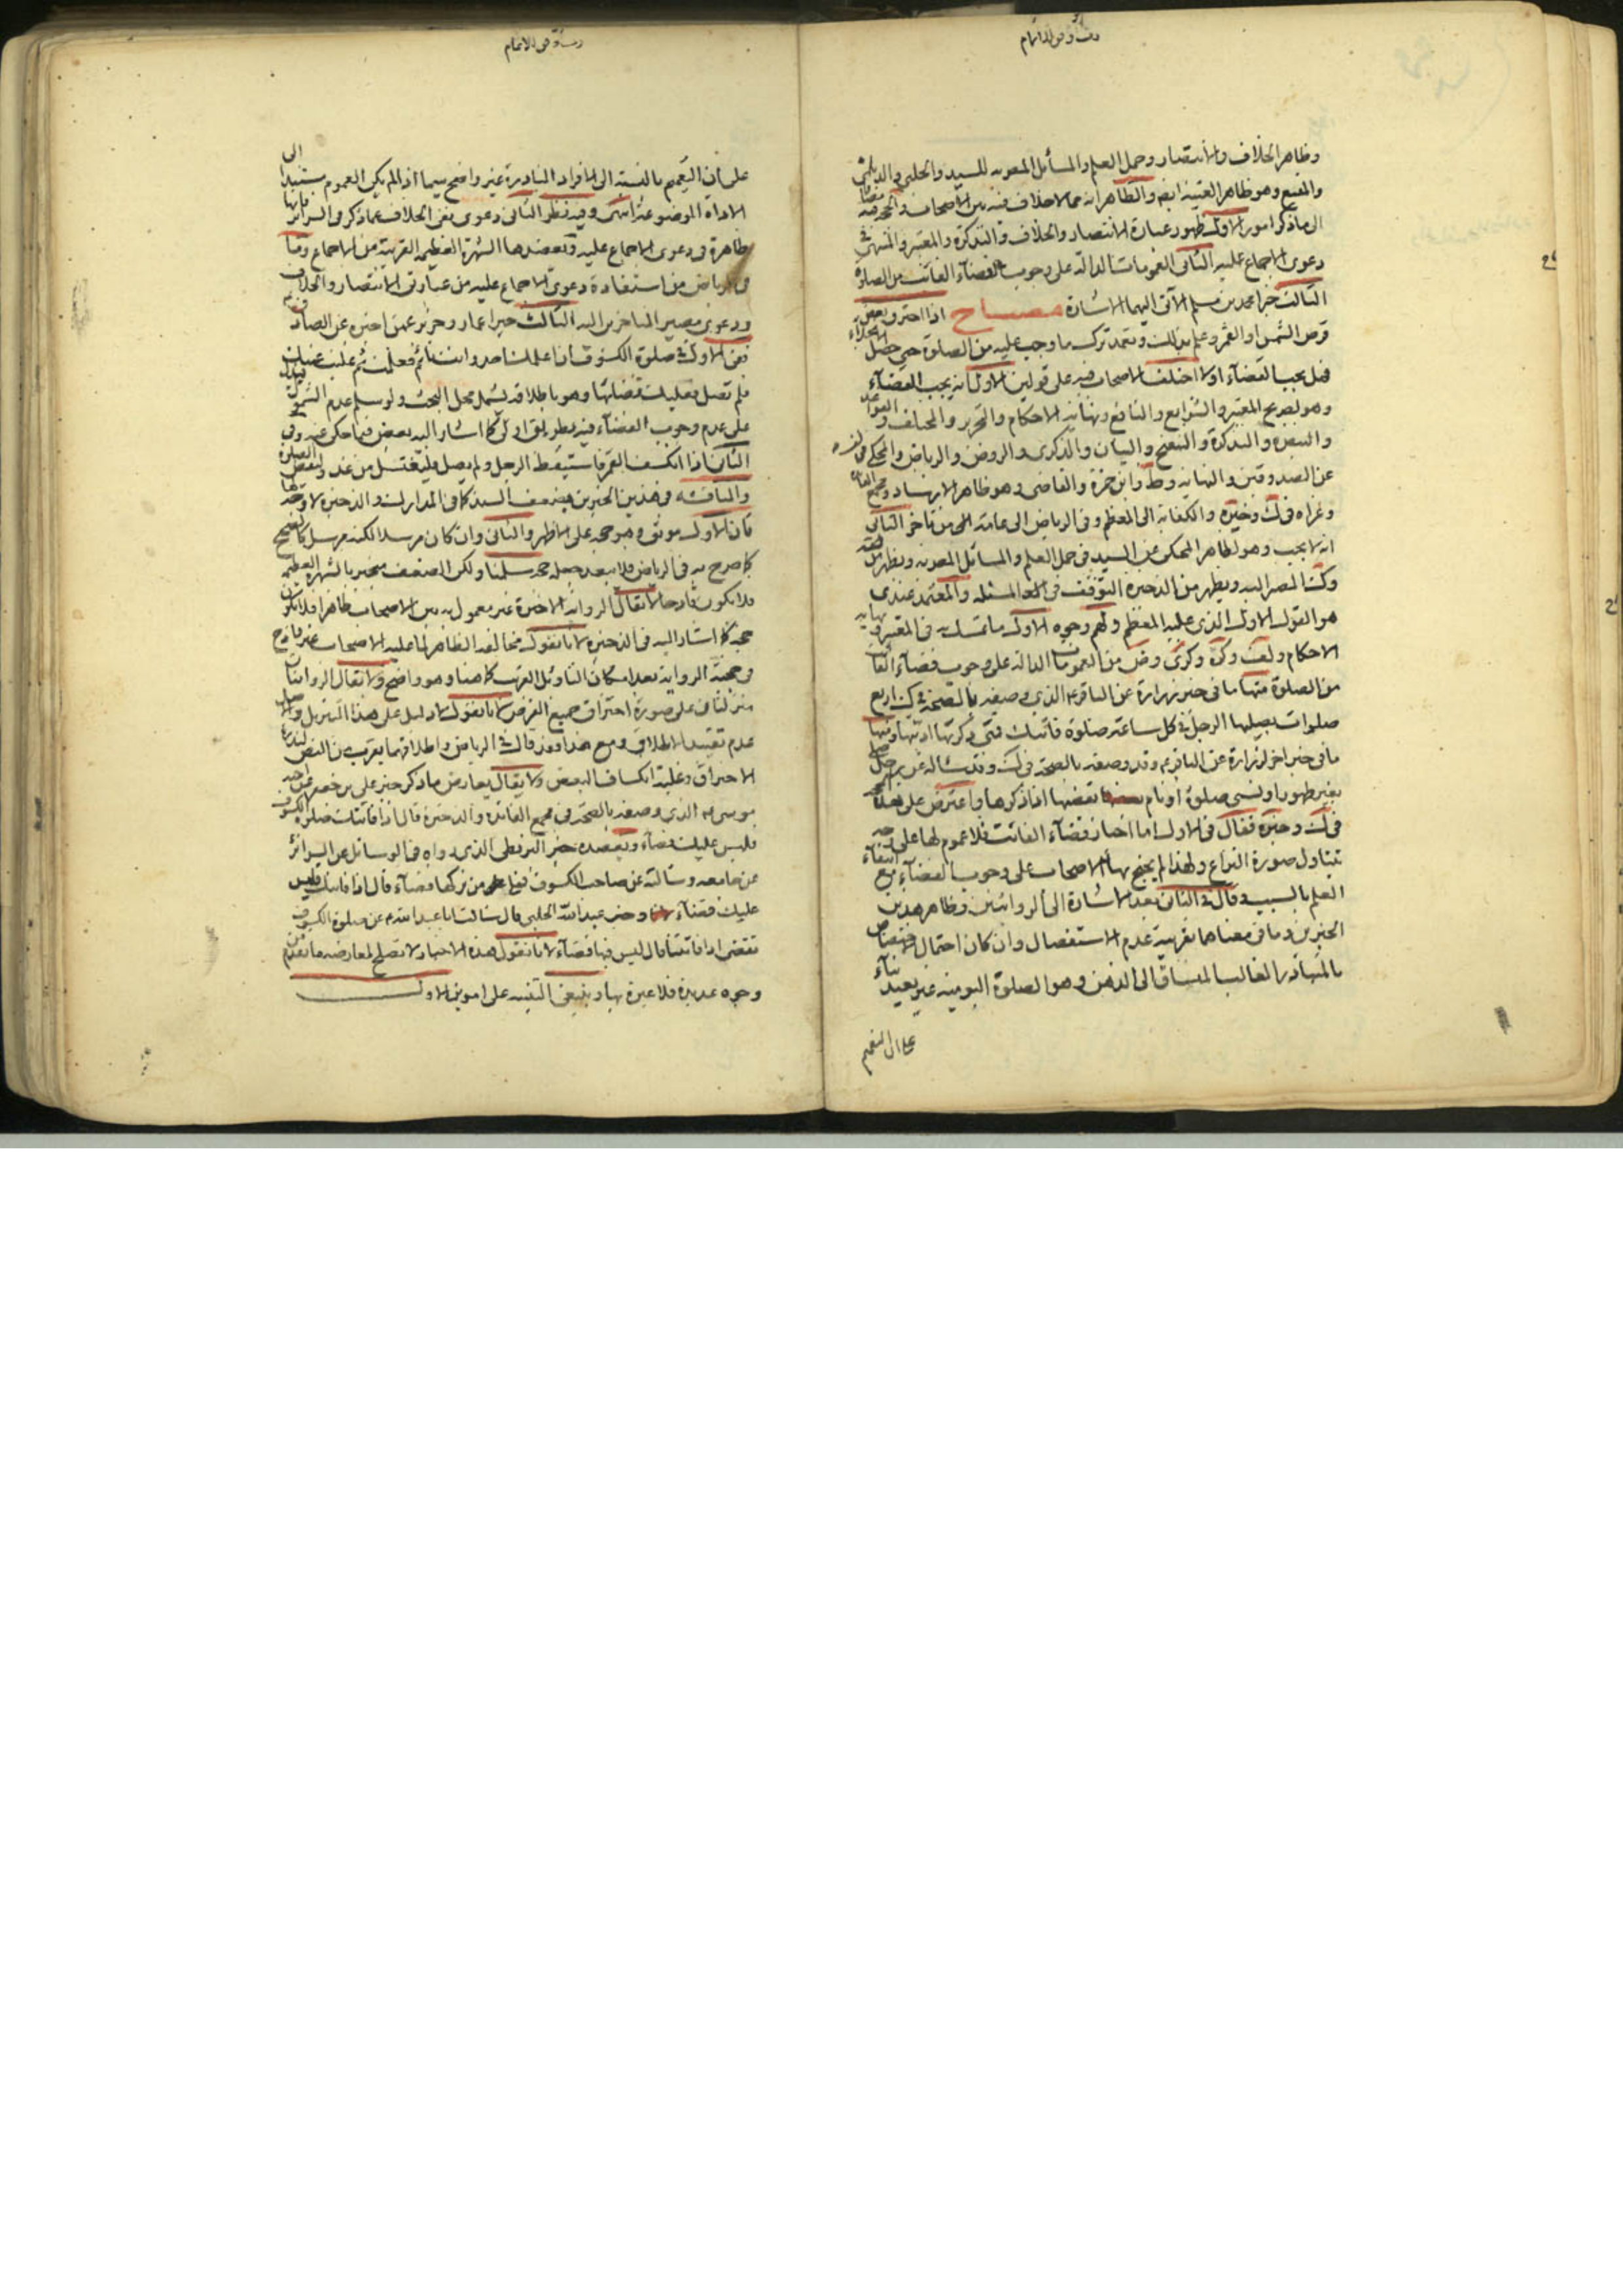 وظاهر الخلاف والانتصار وجمل العلم والمسائل المصرية للسيد والحلبي والديلمي
والمقنع وهو ظاهر الغنية ايضا والظاهر انه مما لا خلاف فيه بين الاصحاب والحجة فيه مضافا
الى ما ذكر امور الاول ظهور عبارة الانتصار والخلاف والتذكرة والمعتبر والمنتهى في
دعوى الاجماع عليه الثاني العمومات الدالة على وجوب القضاء الفائت من الصلوة
الثالث خبرا محمد بن مسلم الآتي اليهما الاشارة مصباح اذا احترق بعض
قرص الشمس او القمر وعلم بذلك وتعمد ترك ما وجب عليه من الصلوة حتى حصل الانجلاء
فهل يجب القضاء او لا اختلف الاصحاب فيه على قولين الاول انه يجب القضاء
وهو لصريح المعتبر والشرايع والنافع ونهاية الاحكام والتحرير والمختلف والقواعد
والتبصرة والتذكرة والتنقيح والبيان والذكرى والروض والرياض والمحكي في
عن الصدوقين والنهاية وط وابن حمزة والقاضي وهو ظاهر الارشاد ومجمع
وعزاه في لك وخيرة والكفاية الى المعظم وفي الرياض الى عامة من تأخر الثاني
انه لا يجب وهو لظاهر المحكي عن السيد في جمل العلم والمسائل المصرية ويظهر من
وكشف المصير اليه ويظهر من الذخيرة التوقف في المسئلة والمعتمد عندي
هو القول الاول الذي عليه المعظم ولهم وجوه الاول ما تمسك به في المعتبر ونهاية
الاحكام ولف وكرة وكرى وض من العمومات الدالة على وجوب قضاء الفائت
من الصلوة منها ما في خبر زرارة عن الباقر ع الذي وصفه بالصحة في ك اربع
صلوات يصليها الرجل في كل ساعة صلوة فاتتك فمتى ذكرتها اديتها ومنها
ما في خبر اخر لزرارة عن الباقر ع وقد وصفه بالصحة في لك وقد سئاله عن رجل صلى
بغير طهور او نسي صلوة او نام يقضها اذا ذكرها واعترض على هذه
في لك وخيرة فقال في الاول اما اخبار قضاء الفائت فلا عموم لها على وجه
يتناول صورة النزاع ولهذا لم يحتج بها الاصحاب على وجوب القضاء مع انتفاء
العلم بالسبب وقال في الثاني بعد الاشارة الى الروايتين وظاهر هذين
الخبرين وما في معناهما بقرينة عدم الاستفصال وان كان احتمال اختصاص
بالمتبادر الغالب المنساق الى الذهن وهو الصلوة اليومية غير بعيد بناء
على ان التعميم
على ان التعميم بالنسبة الى الافراد النادرة غير واضح سيما اذا لم يكن العموم مستندا الى
الاداة الموضوعة له انتهى وفيه نظر الثاني دعوى نفي الخلاف عما ذكر في السرائر فانها
ظاهرة في دعوى الاجماع عليه وتعضدها الشهرة العظيمة القريبة من الاجماع وما
في الرياض من استفادة دعوى الاجماع عليه من عبارتي الانتصار والخلاف
ودعوى مصير المتاخرين اليه الثالث خبرا عمار وحريز عمن اخبره عن الصادق ع
ففي الاول في صلوة الكسوف فان اعلمك احد وانت نائم فعلمت ثم غلبتك عيناك
فلم تصل فعليك قضائها وهو باطلاقه يشمل محل البحث ولو سلم عدم الشمول
على عدم وجوب القضاء فيه بطريق اولى كما اشار اليه بعض فيما حكي عنه وفي
الثاني اذا انكسف القمر فاستيقظ الرجل ولم يصل فليغتسل من غد وليقض الصلوة
والمناقشة في هذين الخبرين بضعف السند كما في المدارك والذخيرة لا وجه لها
فان الاول موثق وهو حجة على الاظهر والثاني وان كان مرسلا لكنه مرسل كالصحيح
كما صرح به في الرياض فلا يبعد جعله حجة سلمنا ولكن الضعف منجبر بالشهرة العظيمة
فلا يكون قادحا لا يقال الرواية الاخيرة غير معمول به بين الاصحاب ظاهرا فلا تكون
حجة كما اشار اليه في الذخيرة لانا نقول مخالفة الظاهر لما عليه الاصحاب غير قادح
في حجية الرواية بعد امكان التاويل القريب كما هنا وهو واضح ولا يقال الروايتان
منزلتان على صورة احتراق جميع القرص لانا نقول لا دليل على هذا التنزيل والاصل
عدم تقييد الاطلاق ومع هذا فقد قال في الرياض واطلاقهما يقرب من النص لندرة
الاحتراق وغلبة انكساف البعض ولا يقال يعارض ما ذكر خبر علي بن جعفر عن اخيه
موسى ع الذي وصفه بالصحة في مجمع الفائدة والذخيرة قال اذا فاتتك صلوة الكسوف
فليس عليك قضاء ويعضده خبر البزنطي الذي رواه في الوسائل عن السرائر
عن جامعه وسالته عن صلوة الكسوف فيما على من تركها قضاء قال اذا فاتتك فليس
عليك قضاء وخبر عبيد الله الحلبي قال سالت ابا عبد الله ع عن صلوة الكسوف
تقضى اذا فاتتنا قال ليس فيها قضاء لانا نقول هذه الاخبار لا تصلح لمعارضة ما تقدم من
وجوه عديدة فلا عبرة بها وينبغي التنبيه على امور الاول